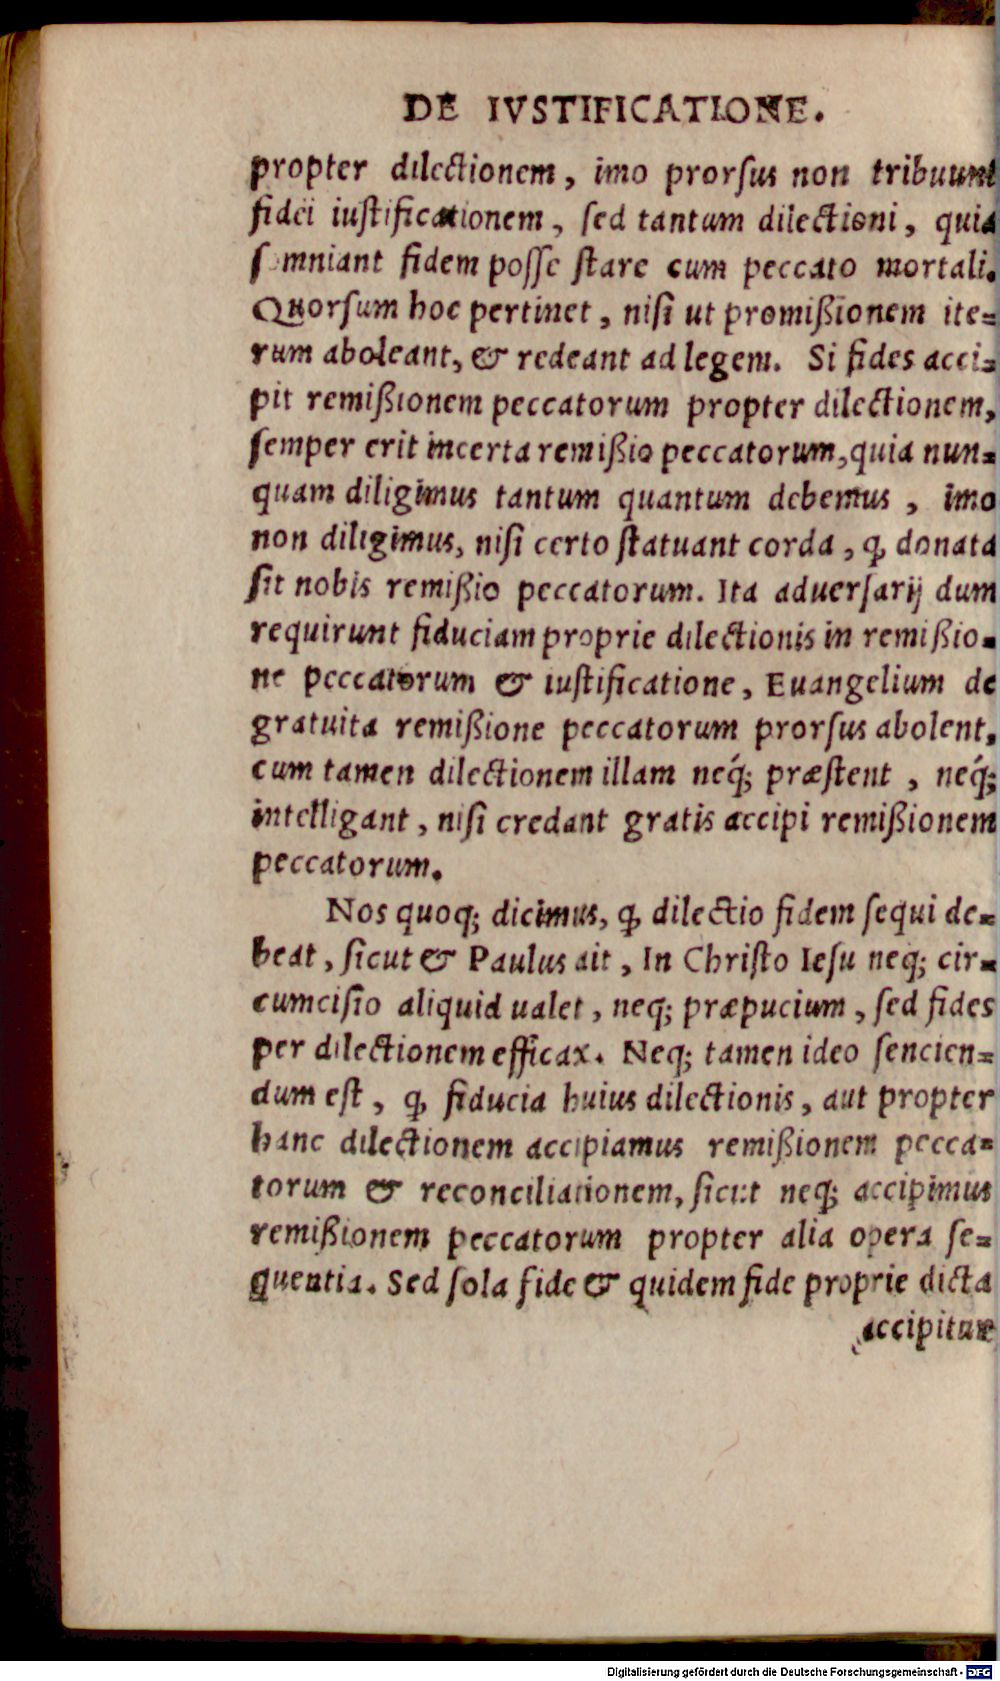 DE IVSTIFICATIONE.
propter dilectionem, imo prorſus non tribuunt
fidei iuſtificationem, ſed tantum dilectioni, quia
ſomniant fidem poſſe ſtare cum peccato mortali.
Quorſum hoc pertinet, niſi ut promißionem ite=
rum aboleant, & redeant ad legem. Si fides acci=
pit remißionem peccatorum propter dilectionem,
ſemper erit incerta remißio peccatorum, quia nun=
quam diligimus tantum quantum debemus, imo
non diligimus, niſi certo ſtatuant corda, ꝙ donata
ſit nobis remißio peccatorum. Ita aduerſarij dum
requirunt fiduciam proprie dilectionis in remißio=
ne peccatorum & iuſtificatione, Euangelium de
gratuita remißione peccatorum prorſus abolent,
cum tamen dilectionem illam neq́; præſtent, neq́;
intelligant, niſi credant gratis accipi remißionem
peccatorum.
Nos quoq; dicimus, ꝙ dilectio fidem ſequi de=
beat, ſicut & Paulus ait, In Chriſto Ieſu neq; cir=
cumciſio aliquid ualet, neq; præpucium, ſed fides
per dilectionem efficax. Neq; tamen ideo ſencien=
dum eſt, ꝙ fiducia huius dilectionis, aut propter
hanc dilectionem accipiamus remißionem pecca=
torum & reconciliationem, ſicut neq; accipimus
remißionem peccatorum propter alia opera ſe=
quentia. Sed ſola fide & quidem fide proprie dicta
accipitur
Digitalisierung gefördert durch die Deutsche Forschungsgemeinschaft - DFG